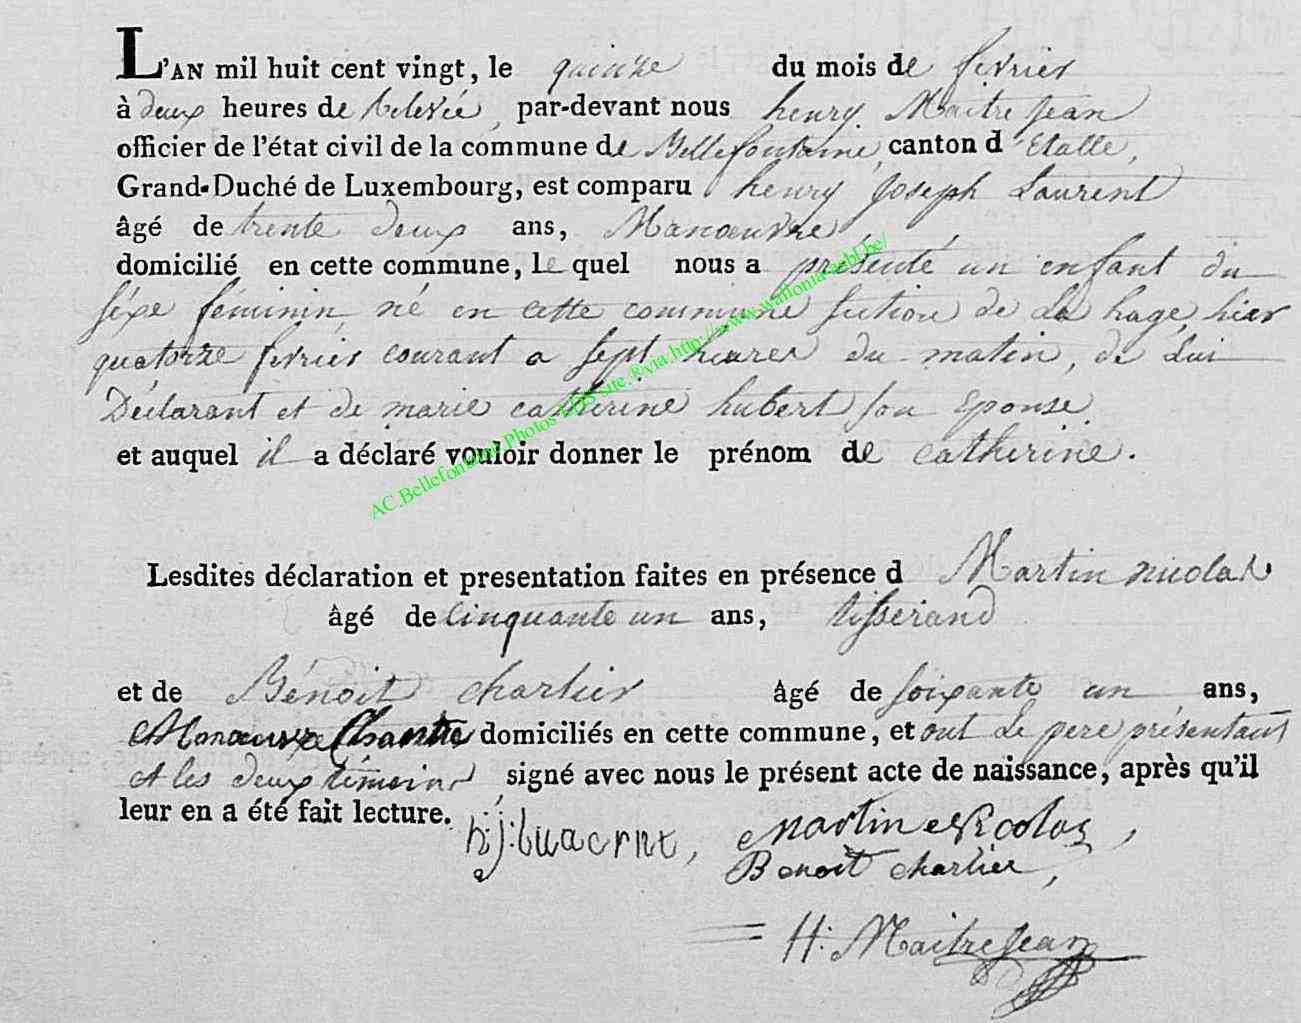 L'AN mil huit cent vingt, le quinze du mois de fevrier
à deux heures de relevée, par-devant nous henry Maitrejean
officier de l'état civil de la commune de Bellefontaine, canton d'Etalle,
Grand-Duché de Luxembourg, est comparu henry Joseph Laurent
âgé de trente deux ans, Manœuvre
domicilié en cette commune, le quel nous a présenté un enfant du
séxe féminin né en cette commune section de La hage, hier
quatorze fevrier courant a sept heures du matin, de Lui
Déclarant et de marie catherine hubert son Epouse
et auquel il a déclaré vouloir donner le prénom de catherine.
Lesdites déclaration et presentation faites en présence d Martin nicolas
âgé de cinquante un ans, tisserand
et de Bénoit charlier âgé de soixante un ans,
Manœuvre domiciliés en cette commune, et ont Le pere présentant
et les deux témoins, signé avec nous le présent acte de naissance, après qu'il
leur en a été fait lecture. h:j:luacrnt, martin Nicolas,
Benoit charlier,
H: Maitrejean
AC.Bellefontaine Photos LDS site.®via http://www.wallonia-asbl.be/